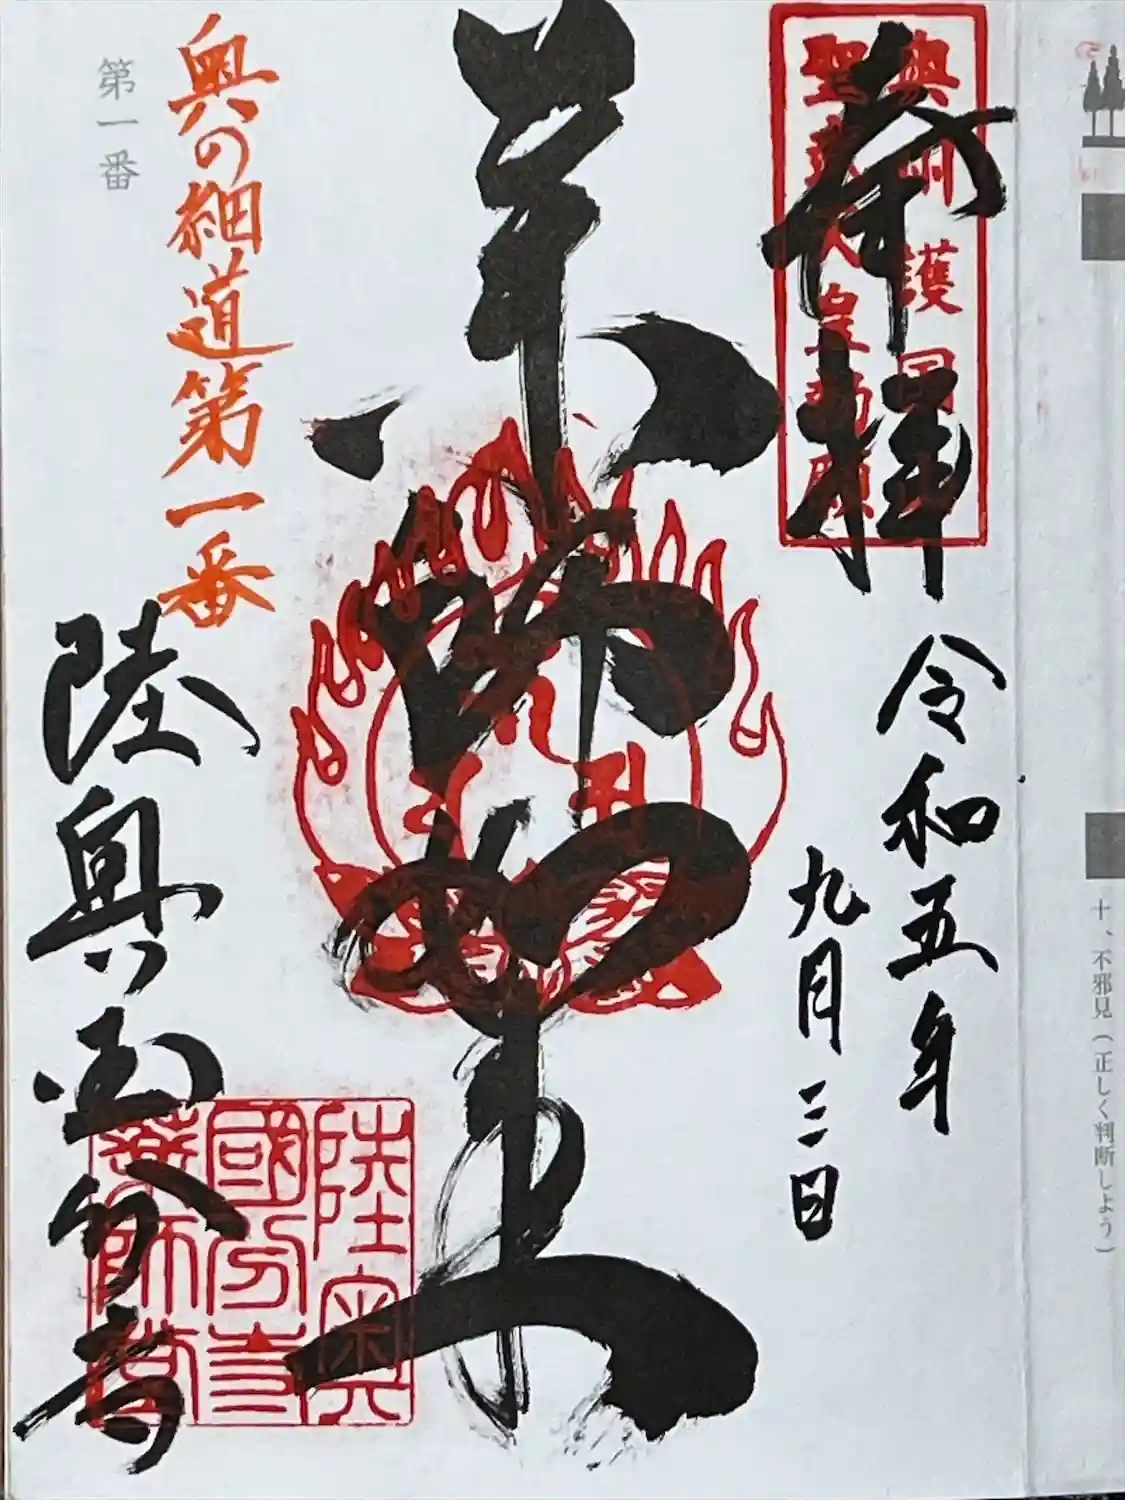 十、不邪見(正しく判断しよう)
奉拝
奥州護国
聖武天皇勅願
令和五年
九月三日
薬師如来
陸奥
國分寺
薬師堂
奥の細道第一番
第一番
陸奥国分寺